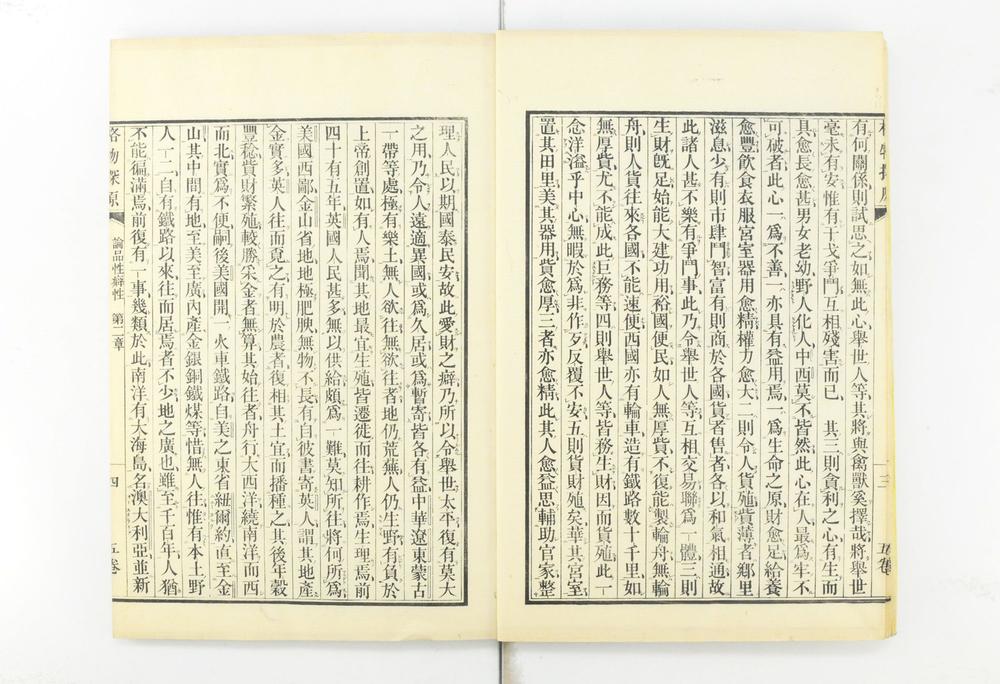 有何關係則試思之如無此心舉世人等其將與禽獸奚擇哉將舉世
毫未有安惟有干戈爭鬥互相殘害而已 其三則貪利之心有生而
具愈長愈甚男女老幼野人化人中西莫不皆然此心在人最爲牢不
可破者此心一爲不善一亦具有益用焉一爲生命之原財愈足給養
愈豐飲食衣服宮室器用愈精權力愈大二則令人貨殖貲薄者鄉里
滋息少有則市肆鬥智富有則商於各國貨者售者各以和氣相通故
此諸人甚不樂有爭鬥事此乃令舉世人等互相交易聯爲一體三則
生財旣足始能大建功用裕國便民如人無厚貲不復能製輪舟無輪
舟則人貨往來各國不能速便西國亦有輪車造有鐵路數十千里如
無厚貲尤不能成此巨務等四則舉世人等皆務生財因而貨殖此一
念洋溢乎中心無暇於爲非作歹反覆不安五則貨財殖矣華其宮室
置其田里美其器用貲愈厚三者亦愈精此其人愈益思輔助官家整
三 五卷
理人民以期國泰民安故此愛財之癖乃所以令舉世太平復有莫大
之用乃令人遠適異國或爲久居或爲暫寄皆各有益中華遼東蒙古
一帶等處極有樂土無人欲往無欲往者地仍荒蕪人仍生野有負於
上帝創置如有人焉聞其地最宜生殖皆遷徙而往耕作焉生理焉前
四十有五年英國人民甚多無以供給頗爲一難莫知所往將何所爲
美國西鄙金山省地地極肥腴無物不長有自彼書寄英人謂其地產
金實多英人往而覓之有明於農者復相其土宜而播種之其後年穀
豐稔貲財繁殖較勝采金者無算其始往者舟行大西洋繞南洋而西
而北實爲不便嗣後美國開一火車鐵路自美之東省紐爾約直至金
山其中間有地至美至廣內產金銀銅鐵煤等惜無人往惟有本土野
人一二自有鐵路以來往而居焉者不少地之廣也雖至千百年人猶
不能徧滿焉前復有一事幾類於此南洋有大海島名澳大利亞並新
格物探原 論品性癖性 第二章 四 五卷